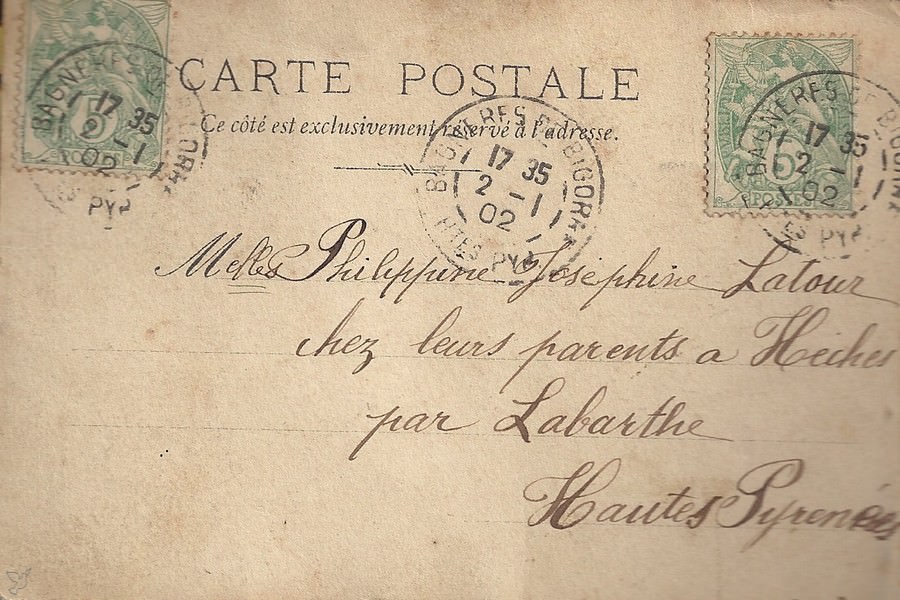 CARTE POSTALE
Ce côté est exclusivement réservé à l'adresse.
BAGNÈRES DE
17 35
2 -1
02
PYR
BAGNERES DE BIGORRE
17 35
2 -1
02
HTES PYR
BAGNERES DE BIGORRE
17 35
2 -1
02
HTES PYR
5
POSTES
Melles Philippine Joséphine Latour
chez leurs parents a Hèches
par Labarthe
Hautes Pyrenées